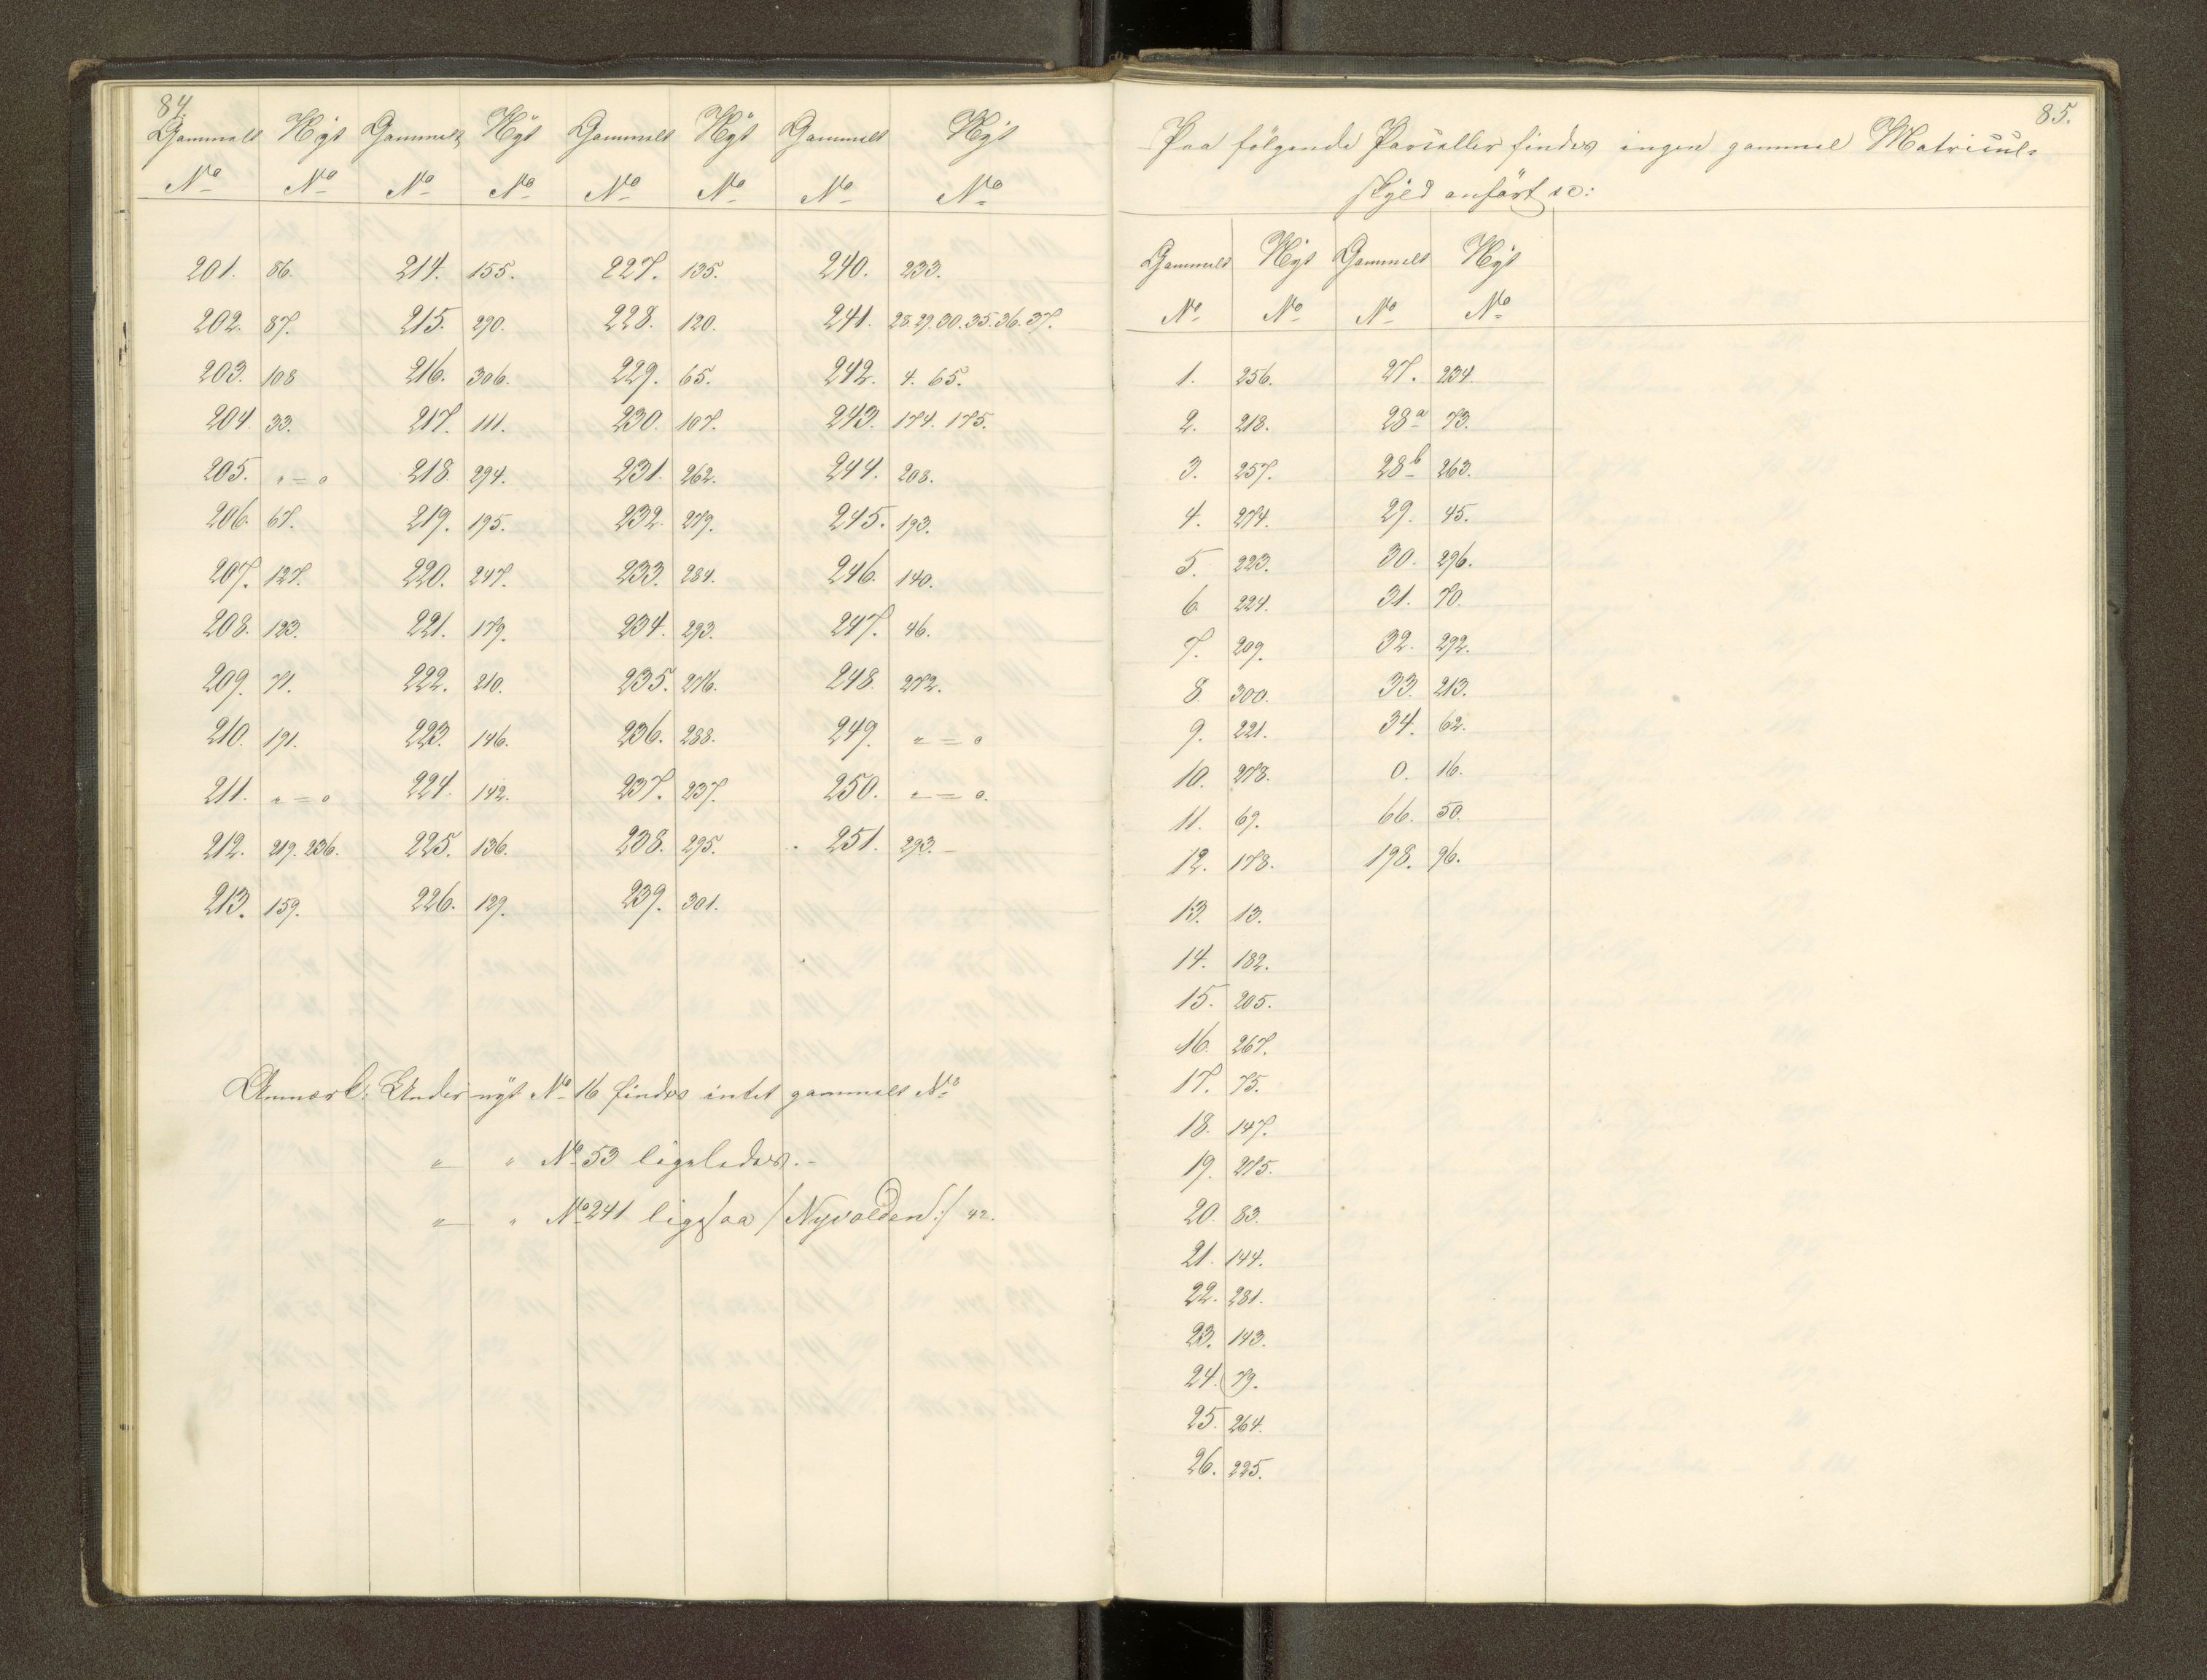 84.
Gammelt Nyt Gammelt Nyt Gammelt Nyt Gammelt Nyt
No No No No No No No No
201. 86. 214. 155. 227. 135. 240. 233.
202. 87. 215. 290. 228. 120. 241. 28. 29. 30. 35. 36. 37.
203. 108 216. 306. 229. 65. 242. 4. 65.
204 33. 217. 111. 230. 107. 243. 174. 175.
205. „ = 0 218. 294. 231. 262. 244. 208.
206. 67. 219. 195. 232. 279. 245. 193.
207. 127. 220. 247. 233. 284. 246. 140.
208. 123. 221. 179. 234. 293. 247. 46.
209. 71. 222. 210. 235. 276. 248. 272.
210. 191. 223. 146. 236. 288. 249. „ = 0
211. „ = 0 224. 142. 237. 237. 250. „ = 0.
212. 219. 236. 225. 136. 238. 295. 251. 293.
213. 159. 226. 129. 239. 301.
Anmærk: Under nyt No 16 findes intet gammelt No
„ „ No 53 ligeledes.
„ „ No 241 ligesaa /: Nyvolden :/ 42.
85.
Paa følgende Parceller findes ingen gammel Matricul-
skyld anført sc:
Gammelt Nyt Gammelt Nyt
No No No No
1. 256. 27. 234.
2. 218. 28a 73.
3. 257. 28b 263.
4. 274. 29. 45.
5. 223. 30. 296.
6. 224. 31. 70.
7. 209. 32. 292.
8. 300. 33. 213.
9. 221. 34. 62.
10. 278. 0. 16.
11. 69. 66. 50.
12. 178. 198. 96.
13. 13.
14. 182.
15. 205.
16. 267.
17. 75.
18. 147.
19. 275.
20. 83.
21. 144.
22. 281.
23. 143.
24. 79.
25. 264.
26. 225.